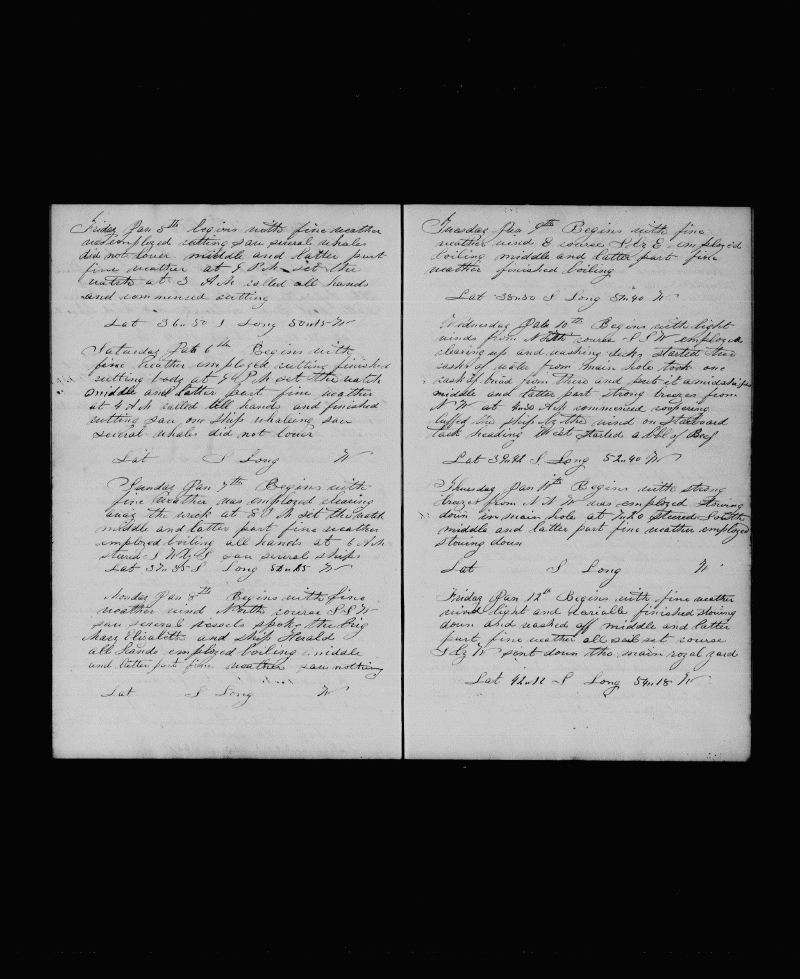 Friday Jan 5th begins with fine weather
was employed cutting saw several whales
did not lower middle and latter part
fine weather at 7 P.M. set the
watch at 3 A.M called all hands
and commenced cutting
Lat 36..50 S Long 50..15 W
Saturday Jan 6th Begins with
fine weather employed cutting finished
cutting body at P.M set the watch
middle and latter part fine weather
at 4 A.M called all hands and finished
cutting saw one ship whaleing saw
several whales did not lower
Lat S Long W
Sunday Jan 7th Begins with
fine weather was employed clearing
away the wreck at 8 P.M set the watch
middle and latter part fine weather
employed boiling all hands at 6 A.M
steered S W by S saw several ships
Lat 37..35 S Long W
Monday Jan 8th Begins with fine
weather wind North course S S W
saw several vessels spoke the brig
Mary Elizabeth and ship Herald
all hands employed boiling midale
and latter part fine weather saw nothing
Lat S Long W
Tuesday Jan 9th Begins with fine
weather wind E course employed
boiling middle and latter part fine
weather finished boiling
Lat 38..50 S Long 51..40 W
Wednesday Jan 10th Begins with light
winds from North course S S W employed
clearing up and washing decks started three
casks of water from main hole took one
cask of bread from there and put it amidships
middle and latter part strong breezes from
N W at 4..30 A.M commenced coopering
luffed the ship by the wind on Starboard
tack heading West started a bbl of Beef
Lat 39..42 S Long 52..40 W
Thursday Jan 11th Begins with strong
breezes from N N W was employed stowing
down in main hole at steered South
middle and latter part fine weather employed
stowing down
Lat S Long W
Friday Jan 12th Begins with fine weather
wind light and variable finished stowing
down and washed off middle and latter
part fine weather all sail set course
S by W sent down the main royal yard
Lat 42..12 S Long 54..18 W